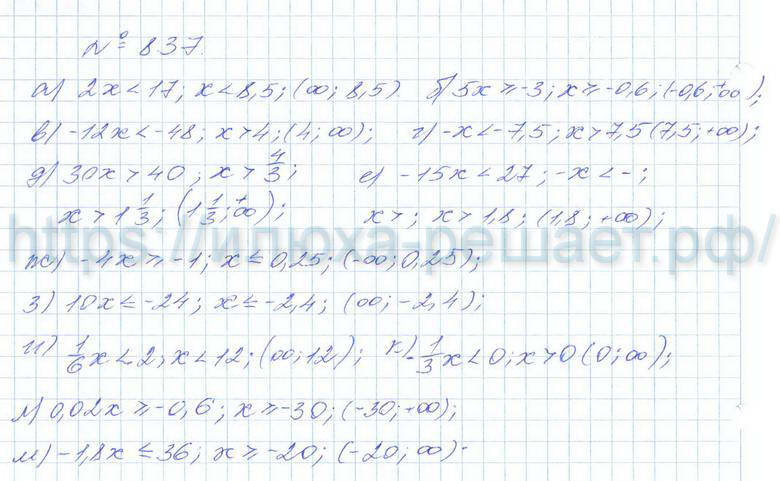 № 837.
а) 2x < 17; x < 8,5; (∞; 8,5) б) 5x ≥ -3; x ≥ -0,6; (-0,6; +∞);
в) -12x < -48; x > 4; (4; ∞); г) -x < -7,5; x > 7,5 (7,5; +∞);
д) 30x > 40; x > 4/3; е) -15x < 27; -x < -;
x > 1 1/3; (1 1/3; +∞); x > ; x > 1,8; (1,8; +∞);
https://илюха-решает.рф/
ж) -4x ≥ -1; x ≤ 0,25; (-∞; 0,25);
з) 10x ≤ -24; x ≤ -2,4; (∞; -2,4);
и) 1/6x < 2; x < 12; (∞; 12); к) -1/3x < 0; x > 0 (0; ∞);
л) 0,02x ≥ -0,6; x ≥ -30; (-30; +∞);
м) -1,8x ≤ 36; x ≥ -20; (-20; ∞).